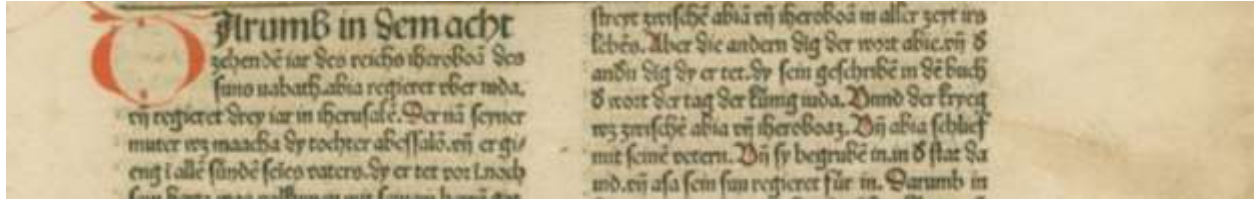 DArumb in dem acht
zehendē iar des reichs iheroboā des
suns nabath. abia regieret vber iuda.
vn̄ regieret drey iar in iherusalē. Der nā seyner
muter wz maacha dy tochter abessalō. vn̄ er gi/
eng ī allē sündē seīes vaters. dy er tet vor ī. noch
streyt zwischē abiā vn̄ iheroboā in aller zeyt irs
lebēs. Aber die andern dīg der wort abie. vn̄ d̄
andn̄ dīg dy er tet. dy sein geschribē in dē buch
d̄ wort der tag der künig iuda. Unnd der kryeg
wz zwischē abia vn̄ iheroboaz. Vn̄ abia schlief
mit seinē vetern. Vn̄ sy begrubē in. in d̄ stat da
uid. vn̄ asa sein sun regieret für in. Darumb in